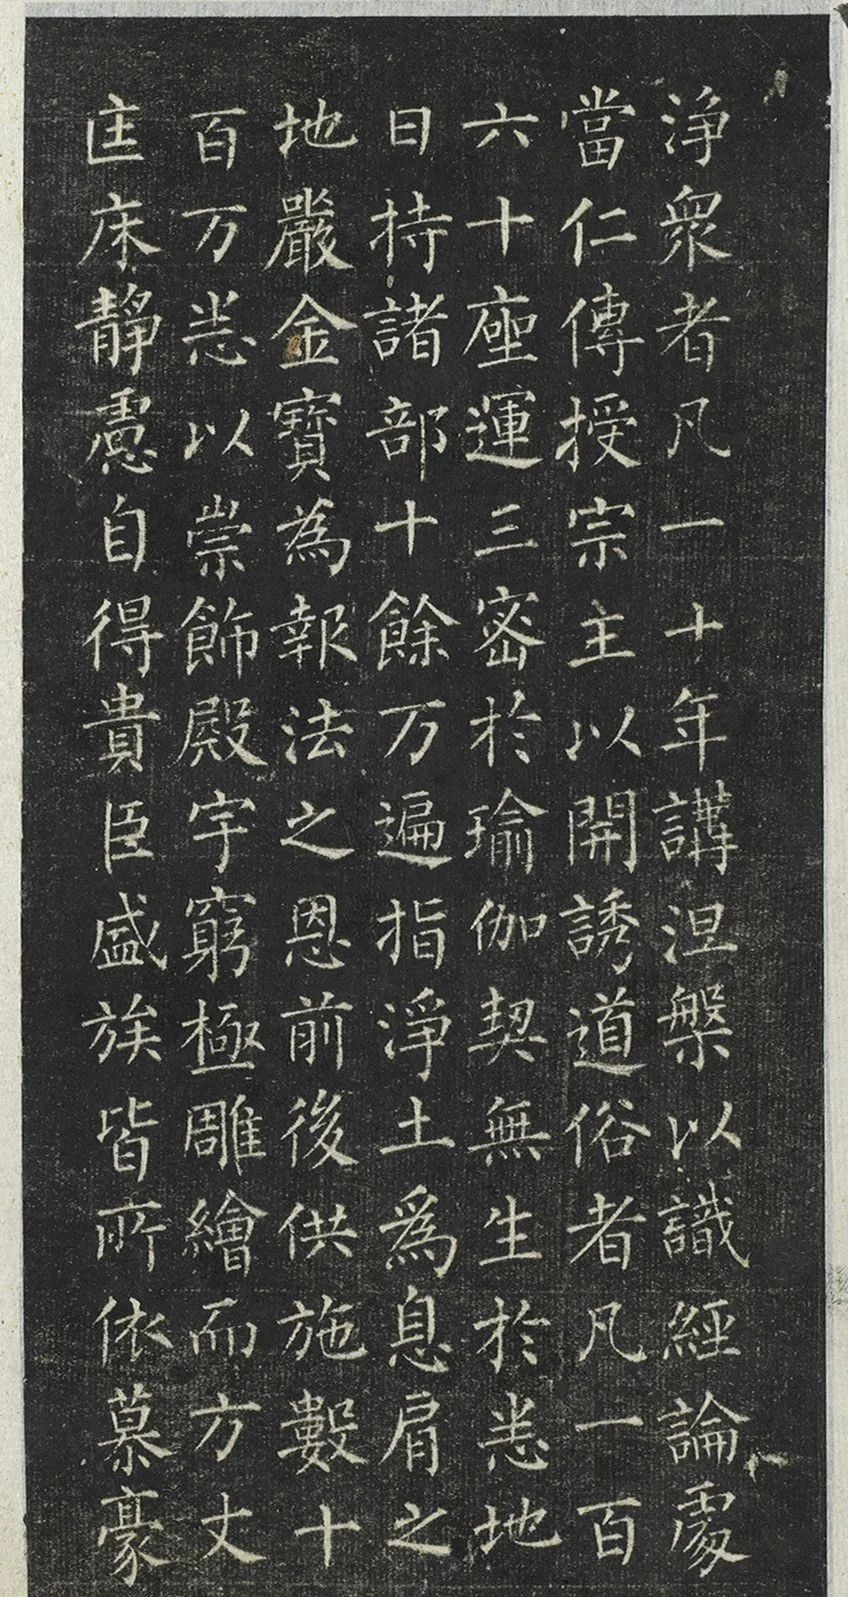 淨衆者凡一十年講涅槃以識經論處
當仁傳授宗主以開誘道俗者凡一百
六十座運三密於瑜伽契無生於悉地
日持諸部十餘万遍指淨土為息肩之
地嚴金寶為報法之恩前後供施數十
百万悉以崇飾殿宇窮極雕繪而方丈
匡床靜慮自得貴臣盛族皆所依慕豪